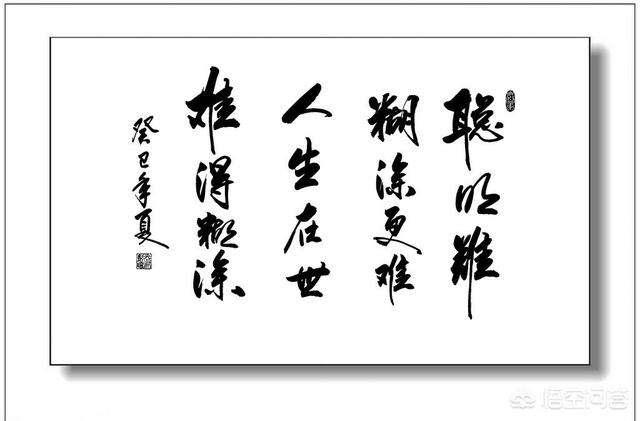 聪明難
糊涂更难
人生在世
难得糊涂
癸巳年夏
悟空问答